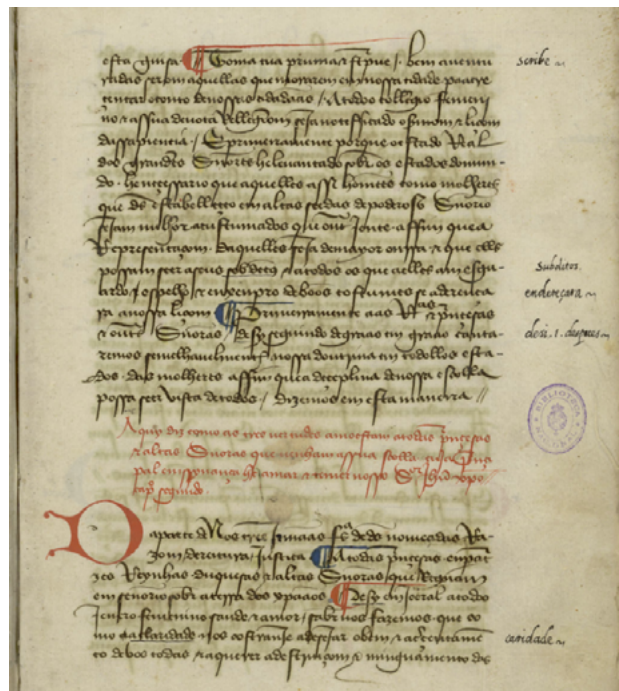 esta guisa ¶ Toma tua pruma & stpue / bem auentu
radas serom aquellas que morarem em nossa cidade pa acre
centar o conto de nossas cidadaãs / A todo collegio femeni
no & a ssua deuota Relligiom seja notefficado o sermom & liçom
da ssapiencia / E primeiramente porque o estado Real
dos grandes Senores he leuantado sobre os estados do mun-
do · he necessario que aquelles assi homẽes como molheres
que ds̃ estabelleceo em altas seedas de poderoso Senorio
sejam milhor acustumados que out jente · a ffim que a
Representaçom daquelles seja de mayor onrra & que elles
possam seer a seus sobdetos & a todos os que a elles am esgu-
ardo / espelho & enxempro de boos costumes se aderença
ra a nossa liçom ¶ Primeiramente aas Rãs & princesas
e out Senoras / desy seguindo de graao em graao canta-
remos semelhauilmente nossa doutrina em todollos esta-
dos das molheres assim que a deceplina de nossa escolla
possa seer vista de todos / dizemos em esta maneira //
Aquy diz como as tres uertudes amoestam a todas princesas
& altas Senoras que uenham a ssua scolla cuja prin
pal enssinança he amar & temer nosso Sor Jhũ xpo
capo segundo
Da parte de Nos tres Jrmaas fas de ds̃ nomeadas Ra
zom dereitura Justiça ¶ A todas princesas enpara
zes Reynhas duquesas & altas Senoras que Regnam
em senorio sobre a terra dos xpaãos ¶ Desy em jeeral a todo
Jenero femenino saude & amor / sabee nos fazemos que co
mo a claridade nos costrange a desejar o bem & acrecentamẽ
to de boos todas & a querer a destruiçom & minguamento das
scribe
subditos.
endereçara
desi. i. despoes
caridade
BIBLIOTECA